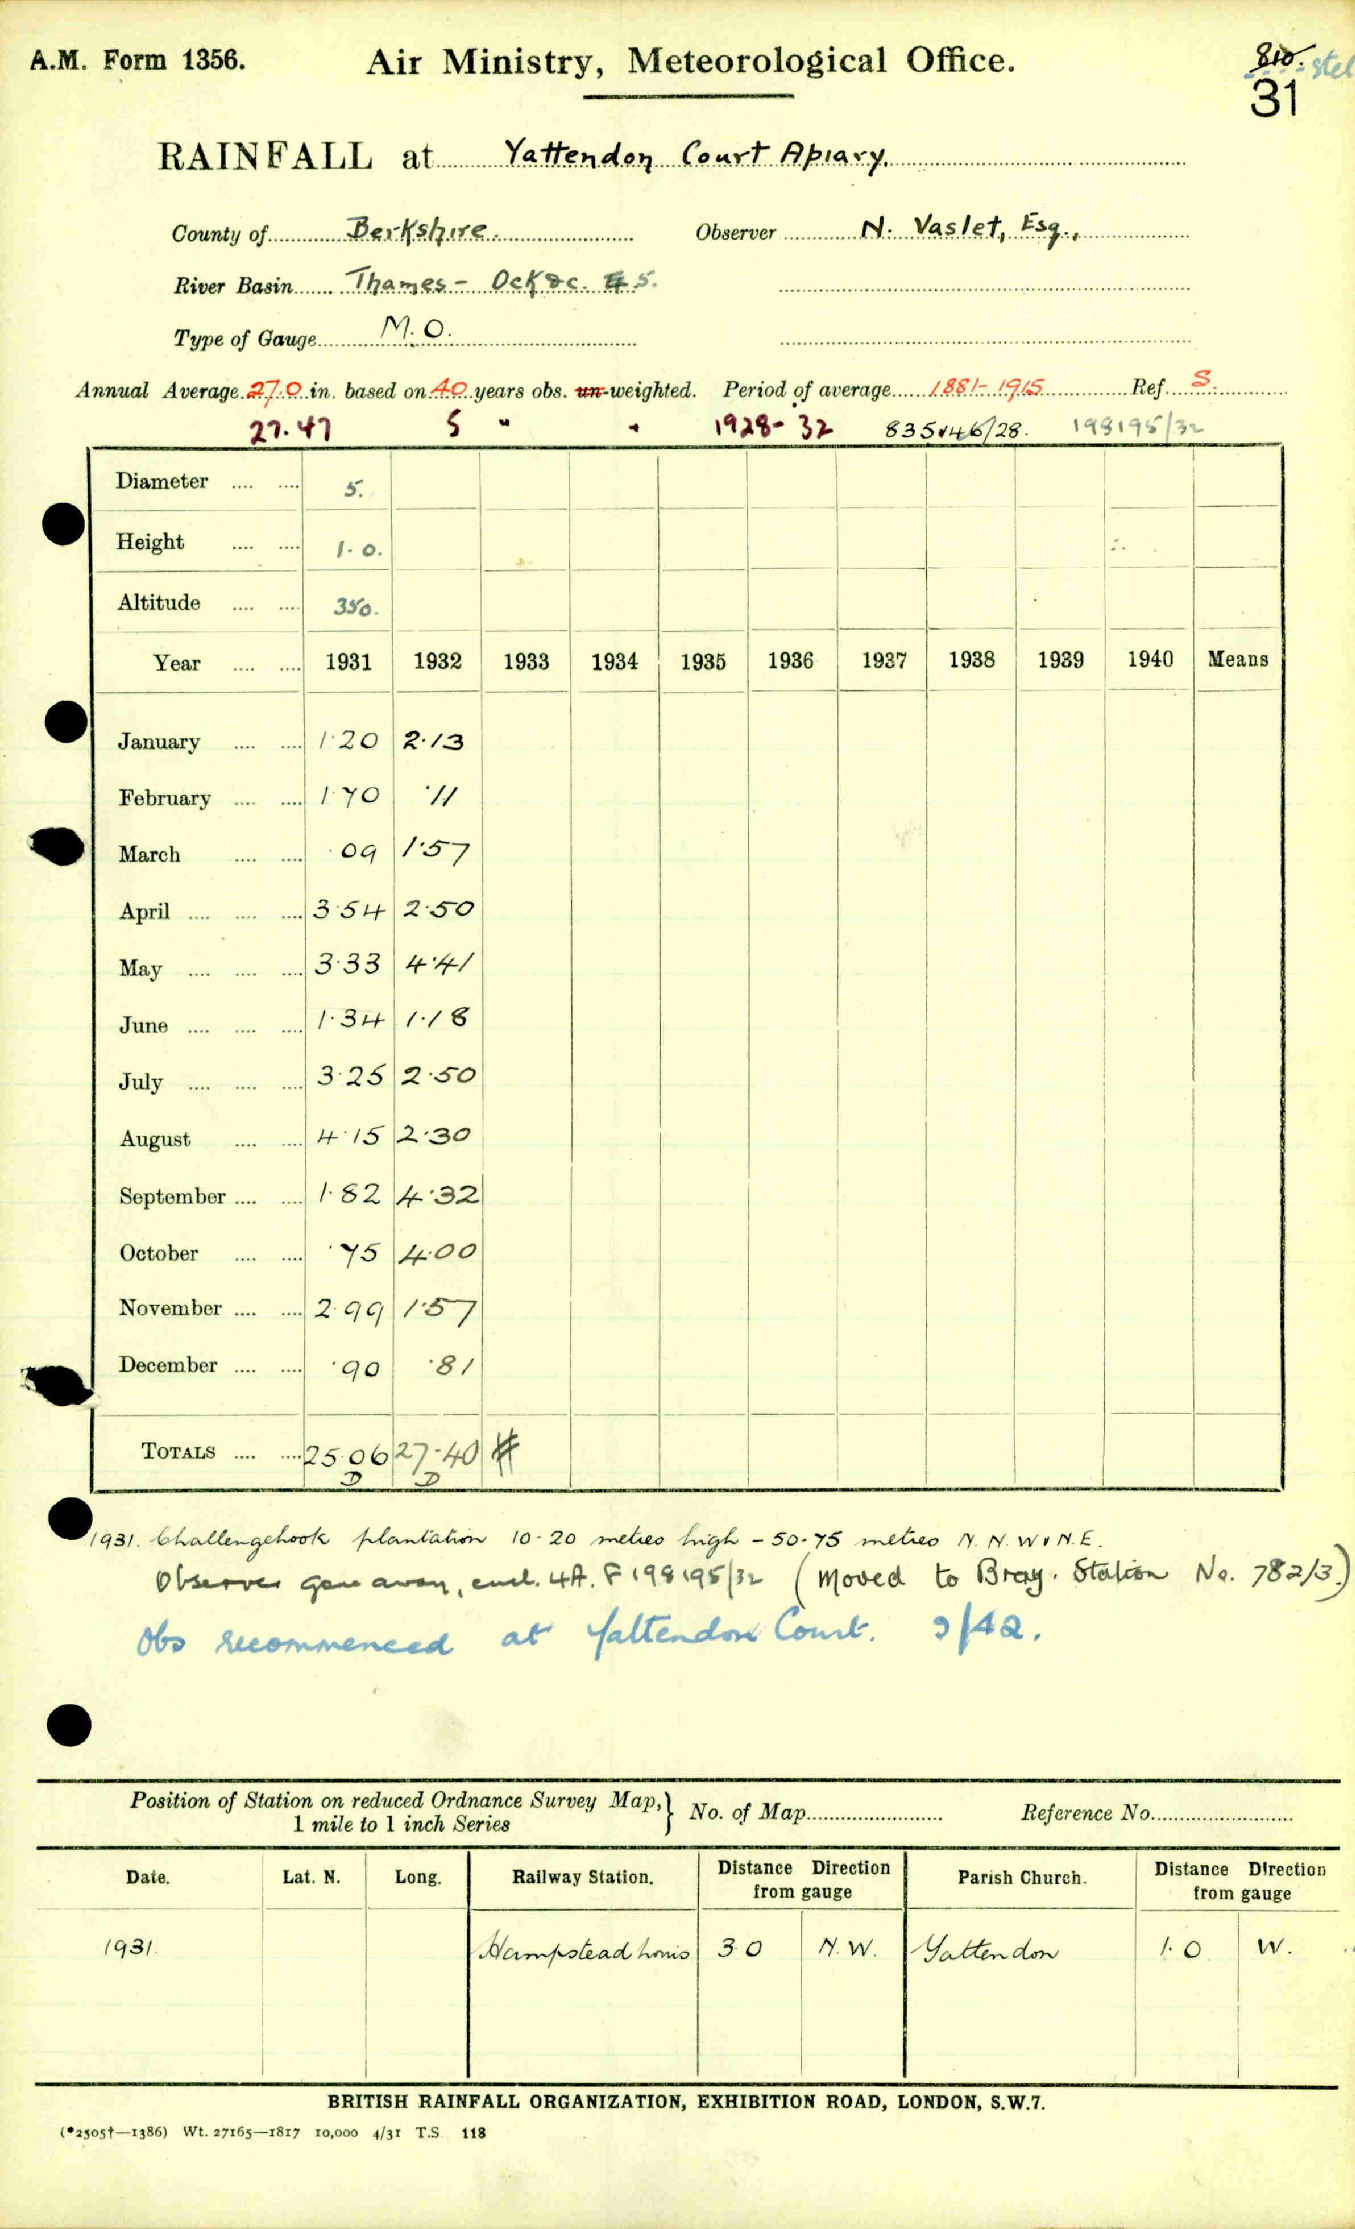 A.M. Form 1356. Air Ministry, Meteorological Office. 810.
31
RAINFALL at Yattendon Court Apiary.
County of Berkshire. Observer N. Vaslet, Esq.,
River Basin Thames - Ock &c. 5.
Type of Gauge M.O.
Annual Average 27.0 in. based on 40 years obs. un-weighted. Period of average 1881-1915 Ref. S.
27.47 5 " " 1928-32 198195/32
Diameter 5.
Height 1.0.
Altitude 350.
Year 1931 1932 1933 1934 1935 1936 1937 1938 1939 1940 Means
January 1.20 2.13
February 1.70 .11
March .09 1.57
April 3.54 2.50
May 3.33 4.41
June 1.34 1.18
July 3.25 2.50
August 4.15 2.30
September 1.82 4.32
October .75 4.00
November 2.99 1.57
December .90 .81
TOTALS 25.06 27.40 #
D D
1931. plantation 10-20 metres high - 50-75 metres N.N.W & N.E.
Observer gone away, encl. 4A. F 198195/32 (Moved to Bray. Station No. 782/3)
Obs recommenced at Yattendon Court. 9/42.
Position of Station on reduced Ordnance Survey Map, } No. of Map Reference No.
1 mile to 1 inch Series
Date. Lat. N. Long. Railway Station. Distance Direction from gauge Parish Church. Distance Direction from gauge
1931. Hampstead Norris 3.0 N.W. Yattendon 1.0 W.
BRITISH RAINFALL ORGANIZATION, EXHIBITION ROAD, LONDON, S.W.7.
(*2505†—1386) Wt. 27165—1817 10,000 4/31 T.S. 118